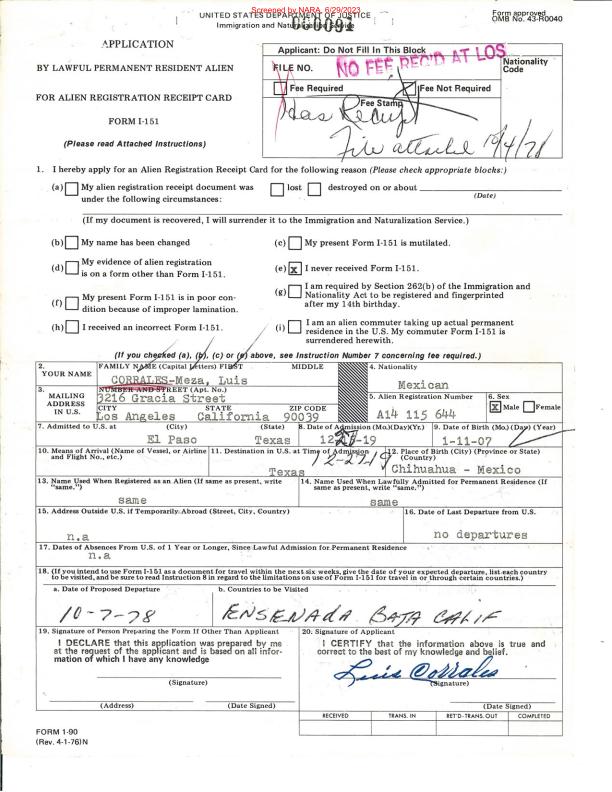 Screened by NARA, 6/29/2023
UNITED STATES DEPARTMENT OF JUSTICE
Immigration and Naturalization Service
000094
Form approved
OMB No. 43-R0040
APPLICATION
BY LAWFUL PERMANENT RESIDENT ALIEN
FOR ALIEN REGISTRATION RECEIPT CARD
FORM I-151
(Please read Attached Instructions)
Applicant: Do Not Fill In This Block
FILE NO.
NO FEE REC'D AT LOS
Nationality
Code
Fee Required
Fee Not Required
Fee Stamp
Has Receipt
File attached 10/4/78
1. I hereby apply for an Alien Registration Receipt Card for the following reason (Please check appropriate blocks:)
(a) My alien registration receipt document was lost destroyed on or about
under the following circumstances:
(Date)
(If my document is recovered, I will surrender it to the Immigration and Naturalization Service.)
(b) My name has been changed
(c) My present Form I-151 is mutilated.
(d) My evidence of alien registration
is on a form other than Form I-151.
(e) x I never received Form I-151.
(f) My present Form I-151 is in poor con-
dition because of improper lamination.
(g) I am required by Section 262(b) of the Immigration and
Nationality Act to be registered and fingerprinted
after my 14th birthday.
(h) I received an incorrect Form I-151.
(i) I am an alien commuter taking up actual permanent
residence in the U.S. My commuter Form I-151 is
surrendered herewith.
(If you checked (a), (b), (c) or (e) above, see Instruction Number 7 concerning fee required.)
2.
YOUR NAME
FAMILY NAME (Capital Letters) FIRST MIDDLE
CORRALES-Meza, Luis
4. Nationality
Mexican
3.
MAILING
ADDRESS
IN U.S.
NUMBER AND STREET (Apt. No.)
3216 Gracia Street
CITY STATE ZIP CODE
Los Angeles California 90039
5. Alien Registration Number
A14 115 644
6. Sex
x Male Female
7. Admitted to U.S. at (City) (State)
El Paso Texas
8. Date of Admission (Mo.)(Day)(Yr.)
12-27-19
9. Date of Birth (Mo.) (Day) (Year)
1-11-07
10. Means of Arrival (Name of Vessel, or Airline
and Flight No., etc.)
11. Destination in U.S. at Time of Admission
Texas
12. Place of Birth (City) (Province or State)
(Country)
Chihuahua - Mexico
13. Name Used When Registered as an Alien (If same as present, write
"same.")
same
14. Name Used When Lawfully Admitted for Permanent Residence (If
same as present, write "same").
same
15. Address Outside U.S. if Temporarily Abroad (Street, City, Country)
n.a
16. Date of Last Departure from U.S.
no departures
17. Dates of Absences From U.S. of 1 Year or Longer, Since Lawful Admission for Permanent Residence
n.a
18. (If you intend to use Form I-151 as a document for travel within the next six weeks, give the date of your expected departure, list each country
to be visited, and be sure to read Instruction 8 in regard to the limitations on use of Form I-151 for travel in or through certain countries.)
a. Date of Proposed Departure
10-7-78
b. Countries to be Visited
ENSENADA BAJA CALIF
19. Signature of Person Preparing the Form If Other Than Applicant
I DECLARE that this application was prepared by me
at the request of the applicant and is based on all infor-
mation of which I have any knowledge
(Signature)
(Address) (Date Signed)
20. Signature of Applicant
I CERTIFY that the information above is true and
correct to the best of my knowledge and belief.
Luis Corrales
(Signature)
(Date Signed)
RECEIVED TRANS. IN RET'D-TRANS. OUT COMPLETED
FORM I-90
(Rev. 4-1-76)N